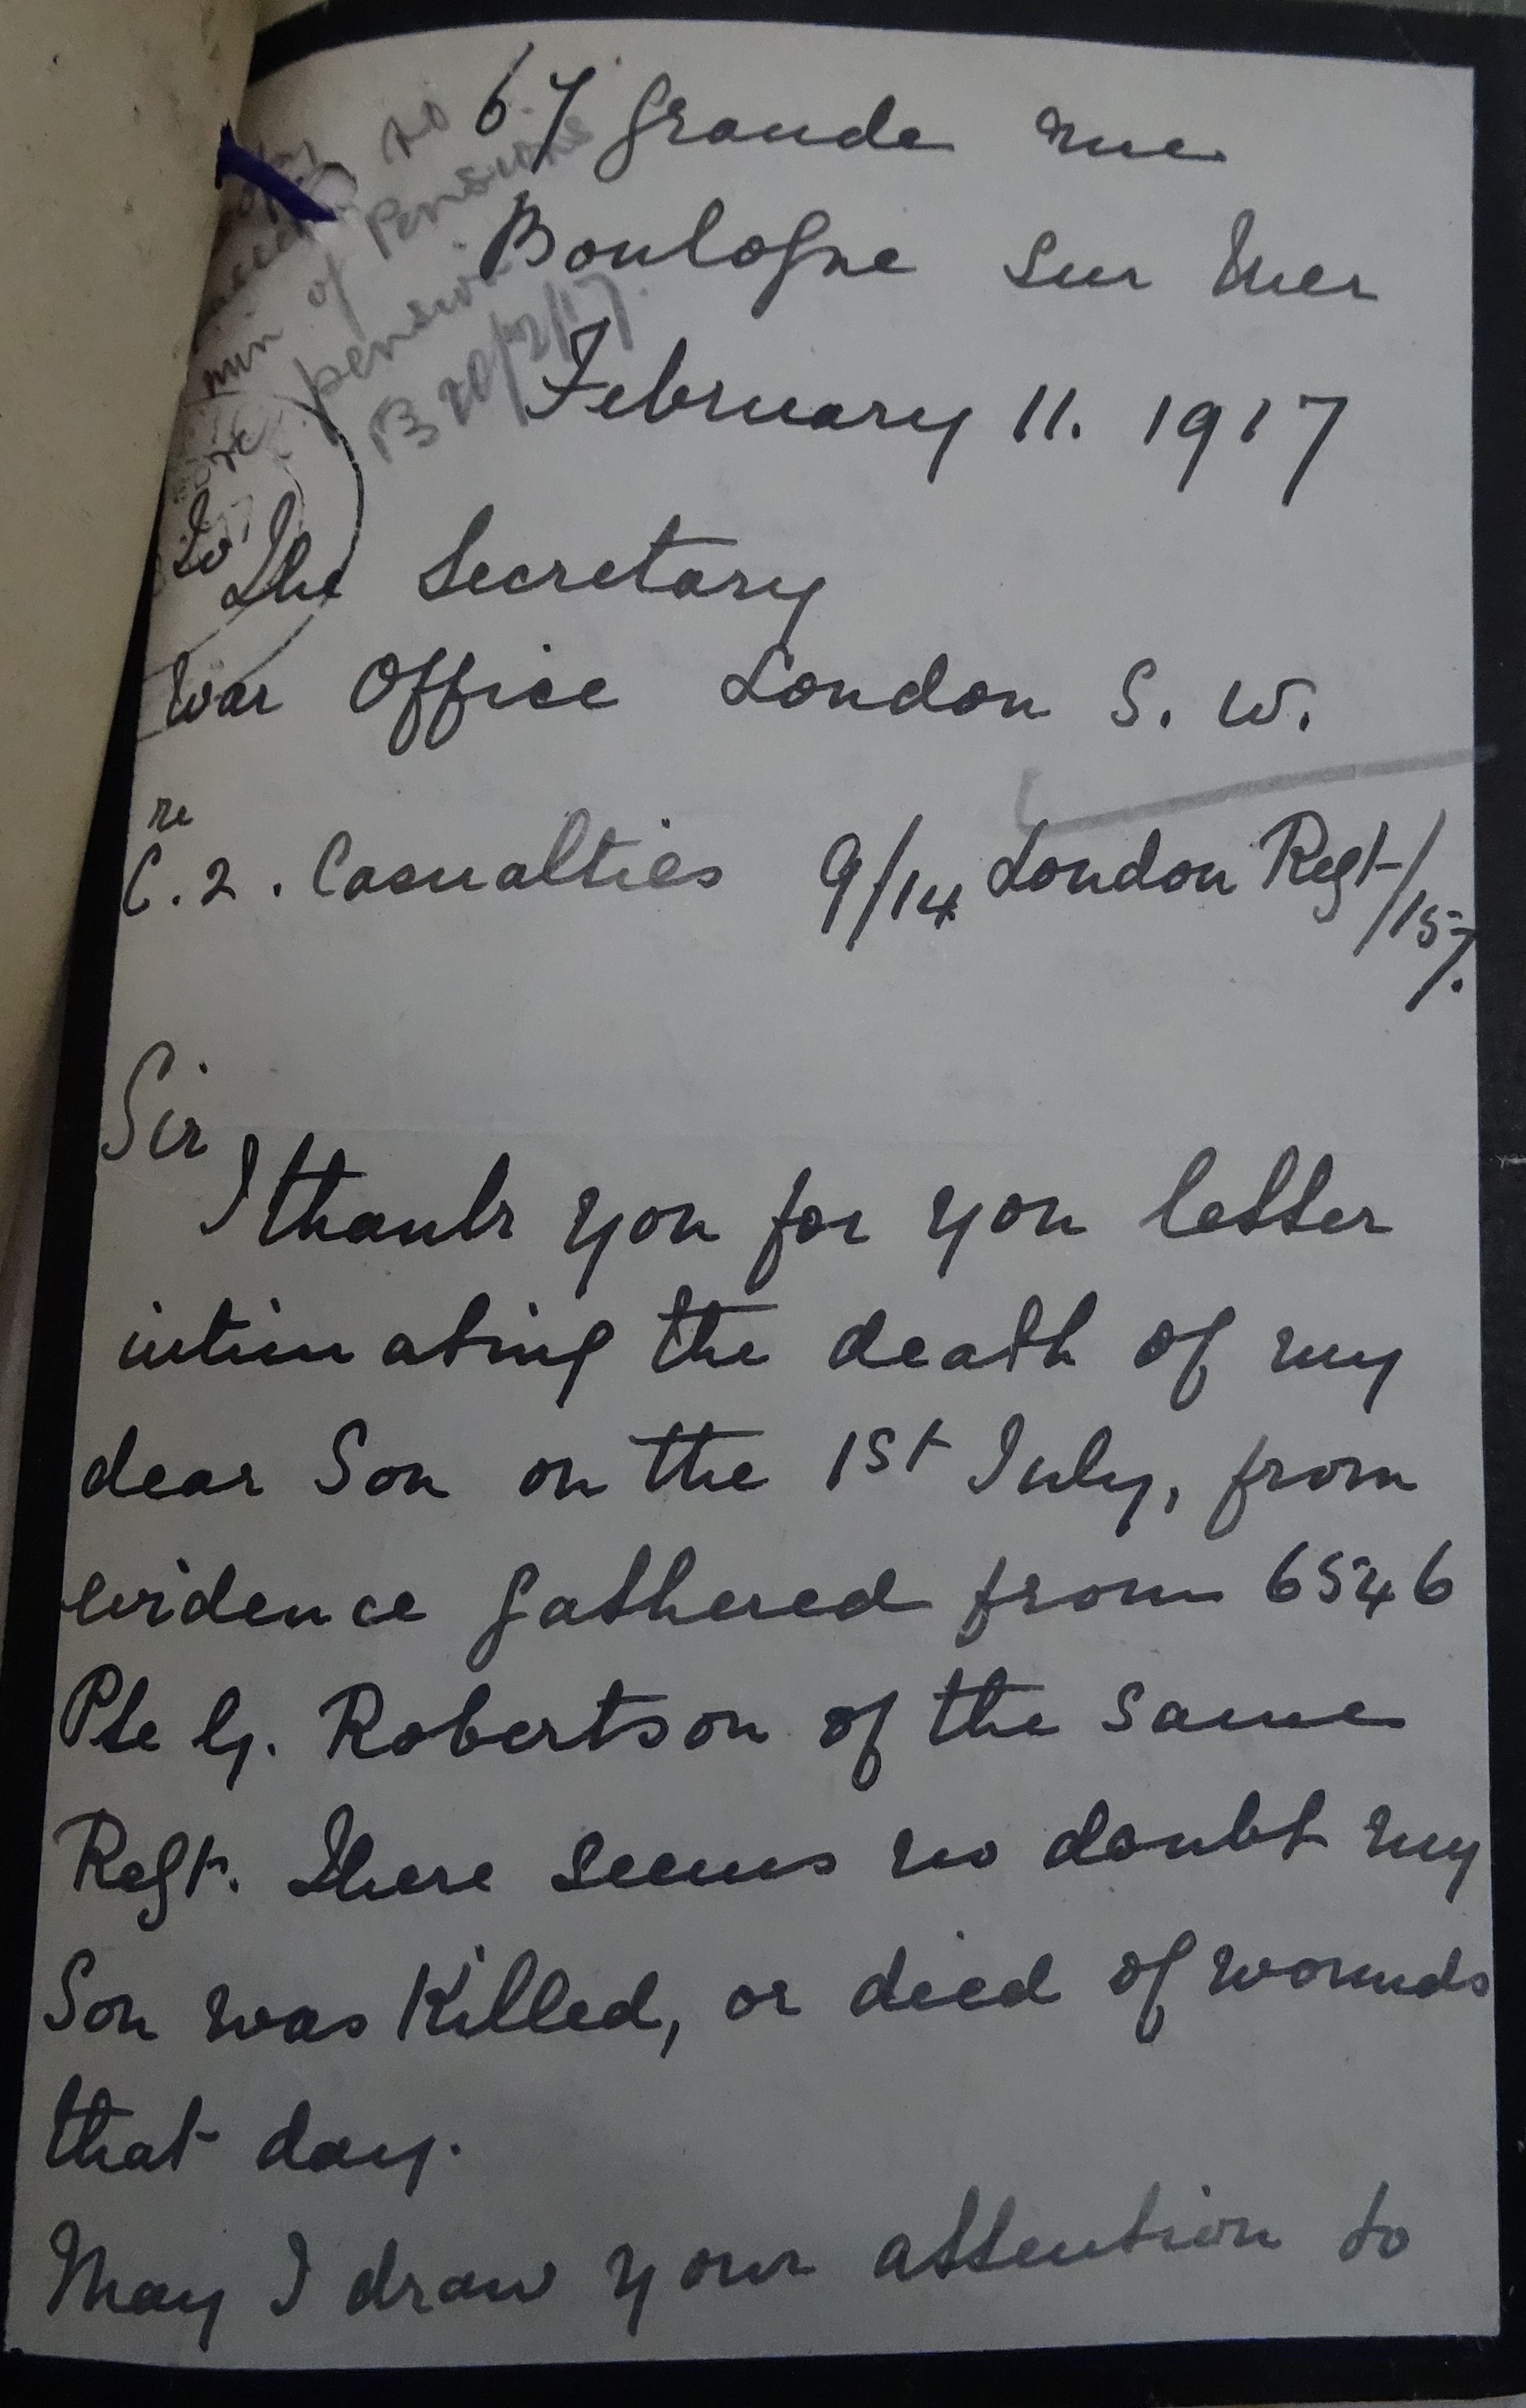 67 Grande rue
Boulogne sur Mer
February 11. 1917
to
min of Pensions
pension
B 20/2/17
To The Secretary
War Office London S. W.
re
C. 2. Casualties 9/14 London Regt/157.
Sir
I thank you for you letter
intimating the death of my
dear Son on the 1st July, from
evidence gathered from 6546
Pte G. Robertson of the same
Regt. There seems no doubt my
Son was Killed, or died of wounds
that day.
May I draw your attention to